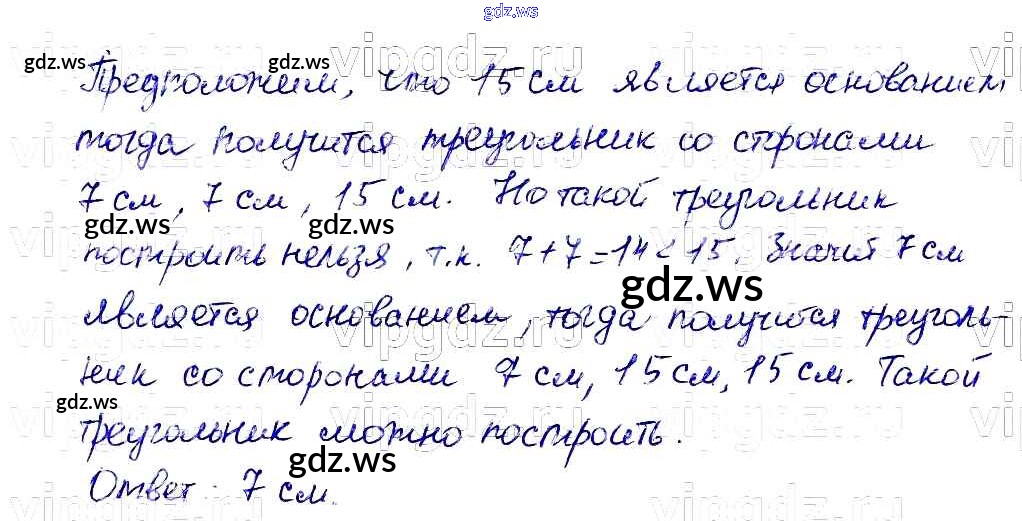 gdz.ws
Предположим, что 15 см является основанием,
тогда получится треугольник со сторонами
7 см, 7 см, 15 см. Но такой треугольник
построить нельзя, т.к. 7+7=14<15. Значит 7 см
является основанием, тогда получится треуголь-
ник со сторонами 7 см, 15 см, 15 см. Такой
треугольник можно построить.
Ответ: 7 см.